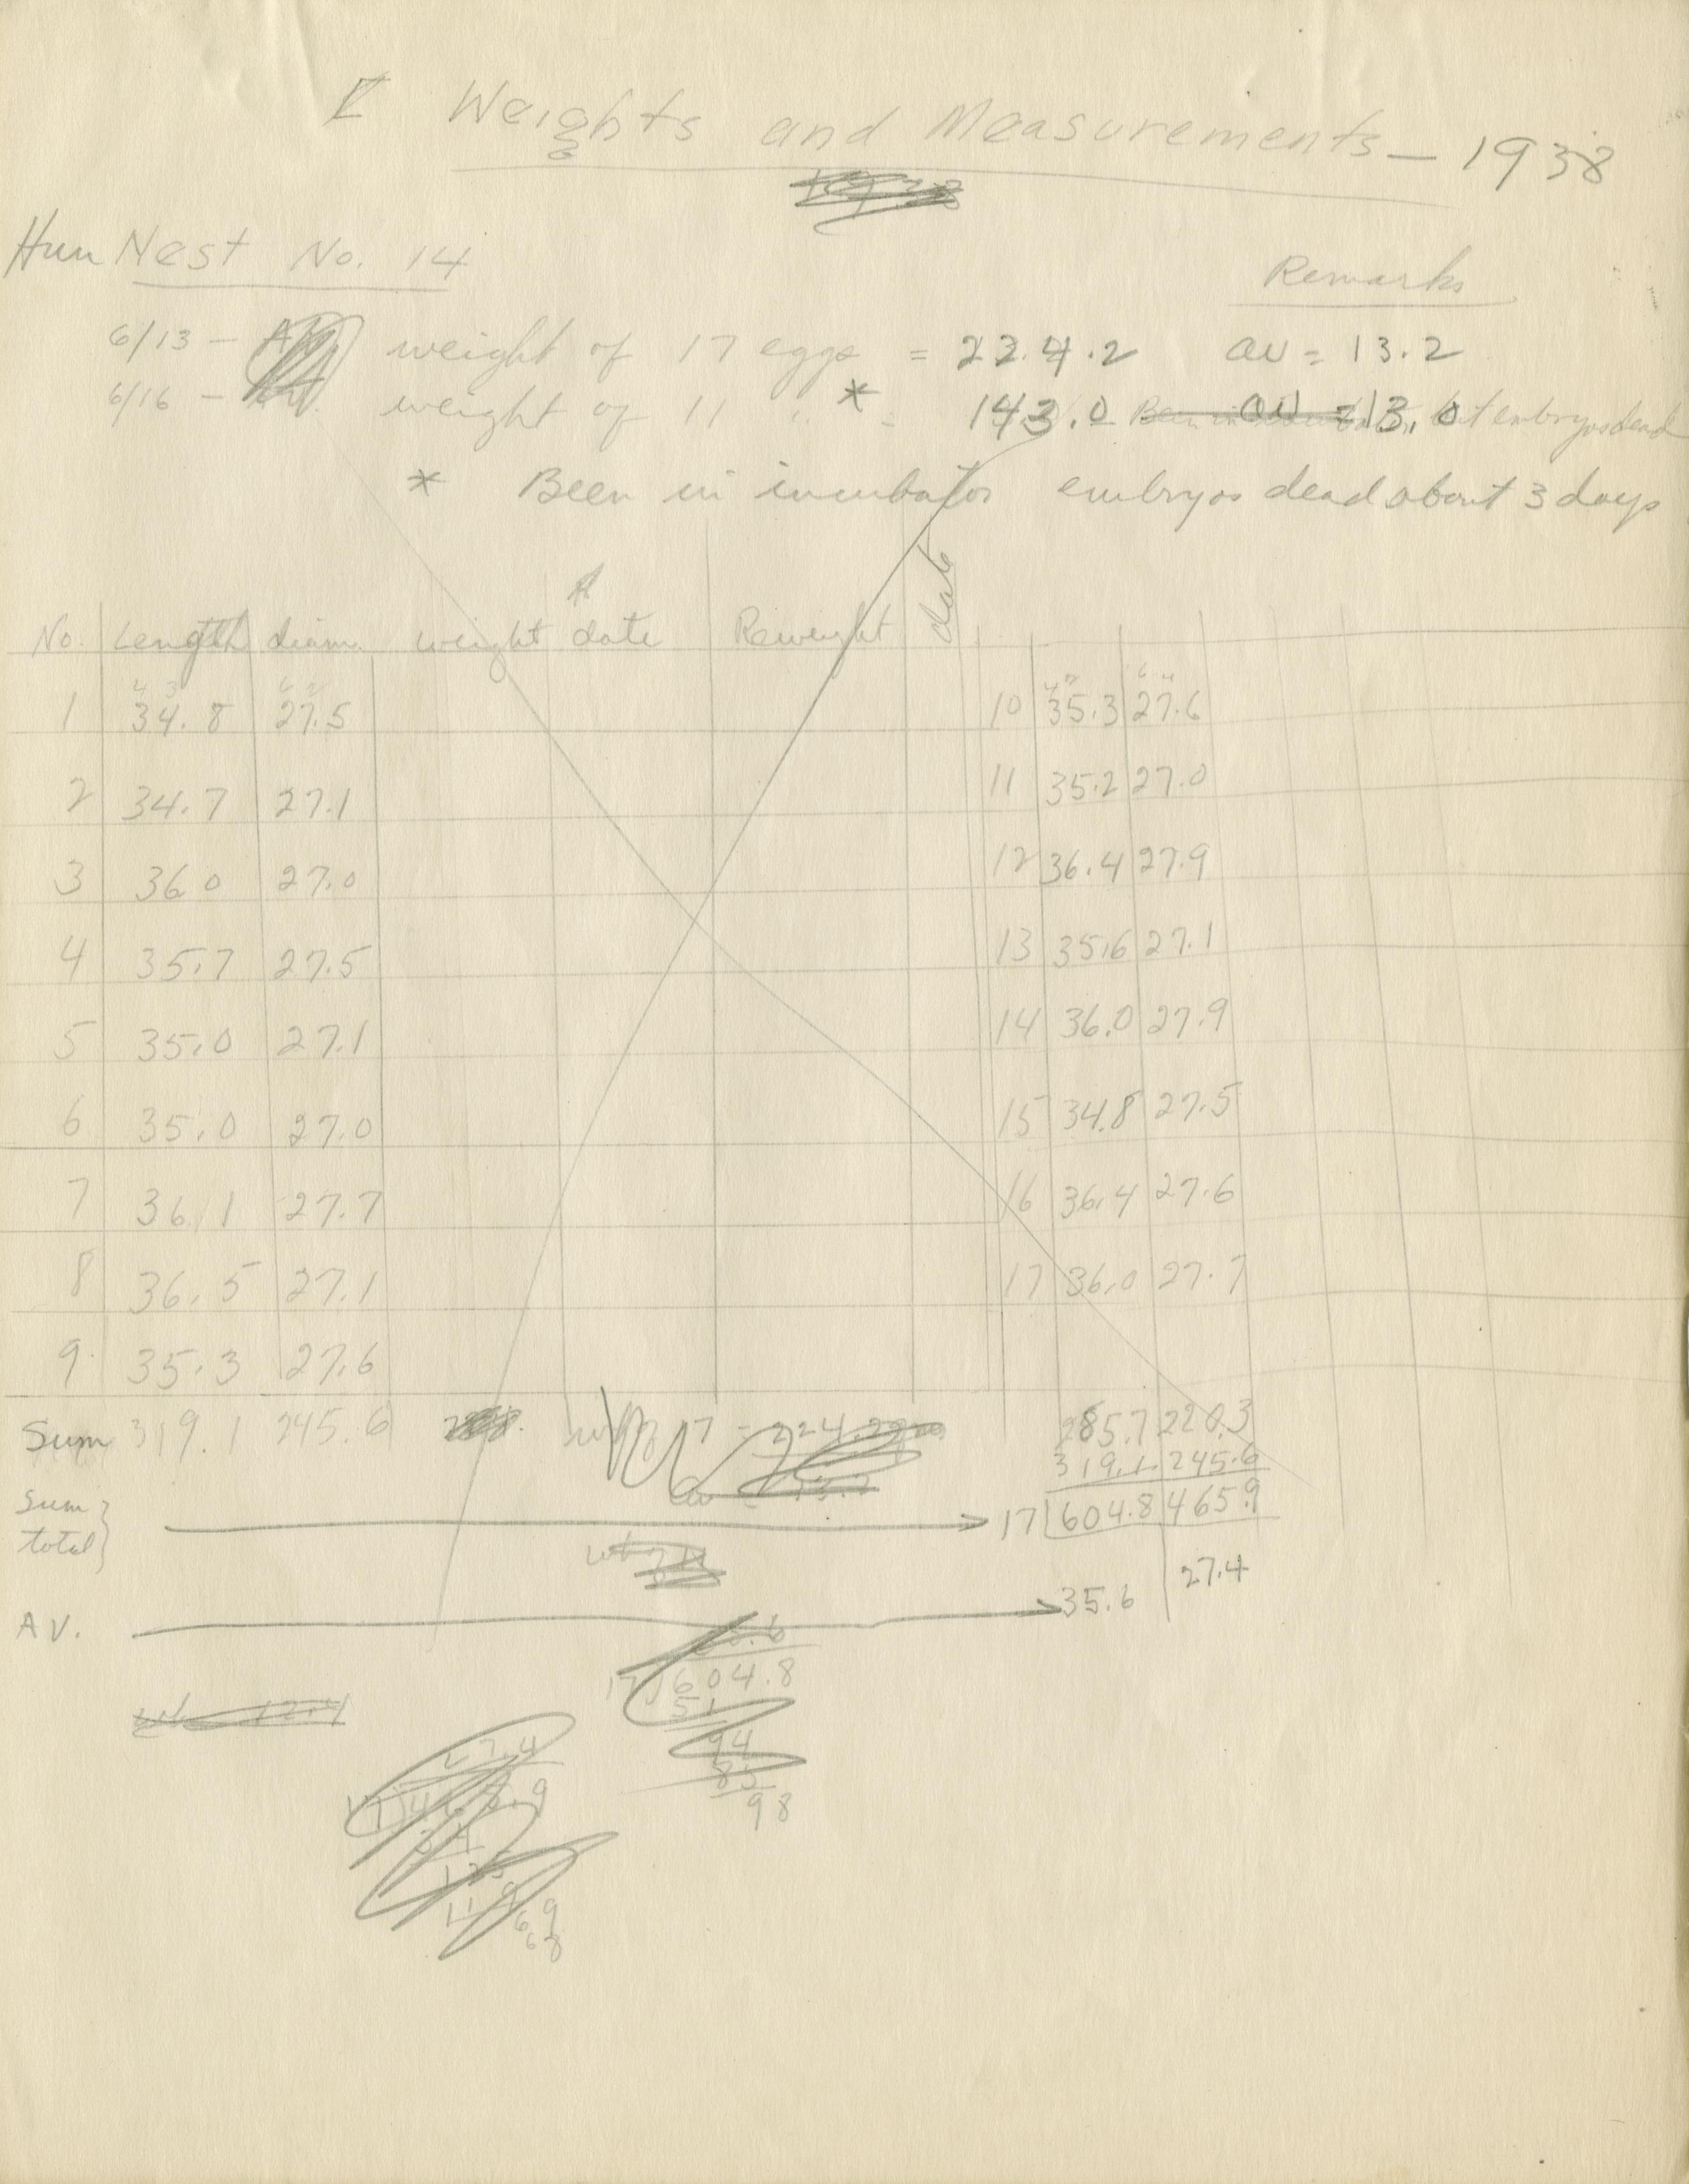 Weights and Measurements — 1938
Hun Nest No. 14
Remarks
6/13 — weight of 17 eggs = 224.2 av = 13.2
6/16 — weight of 11 " * = 143.0 av = 13.0 but embryos dead
* Been in incubator embryos dead about 3 days
No. Length diam. weight date Reweight date
4 3 6 2
1 34.8 27.5 10 35.3 27.6
2 34.7 27.1 11 35.2 27.0
3 36.0 27.0 12 36.4 27.9
4 35.7 27.5 13 35.6 27.1
5 35.0 27.1 14 36.0 27.9
6 35.0 27.0 15 34.8 27.5
7 36.1 27.7 16 36.4 27.6
8 36.5 27.1 17 36.0 27.7
9 35.3 27.6
Sum 319.1 245.6 17 = 224.2 285.7 220.3
319.1 245.6
Sum total 17 604.8 465.9
AV. 35.6 27.4
17 604.8
51
94
85
98
27.4
17 465.9
34
125
119
69
68